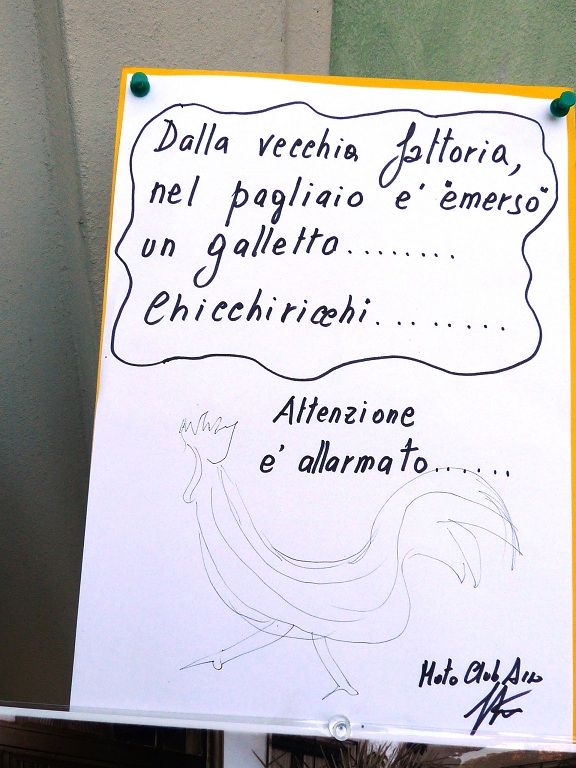 Dalla vecchia fattoria,
nel pagliaio e' "emerso"
un galletto........
Chicchiricchi.........
Attenzione
e' allarmato......
Moto Club